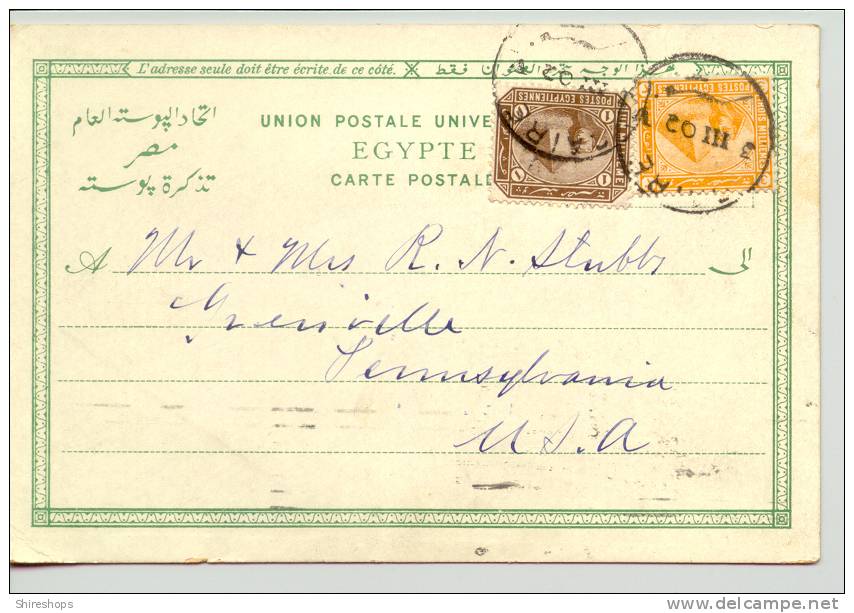 L'adresse seule doit être écrite de ce côté.
اتحاد البوستة العام
مصر
تذكرة بوستة
UNION POSTALE UNIVE
EGYPTE
CARTE POSTALE
POSTES EGYPTIENNES
POSTES EGYPTIENNES
3 III 02
III 02
A Mr & Mrs R. N. Stubbs الى
Greenville
Pennsylvania
U.S.A
Shireshops
delcampe.net